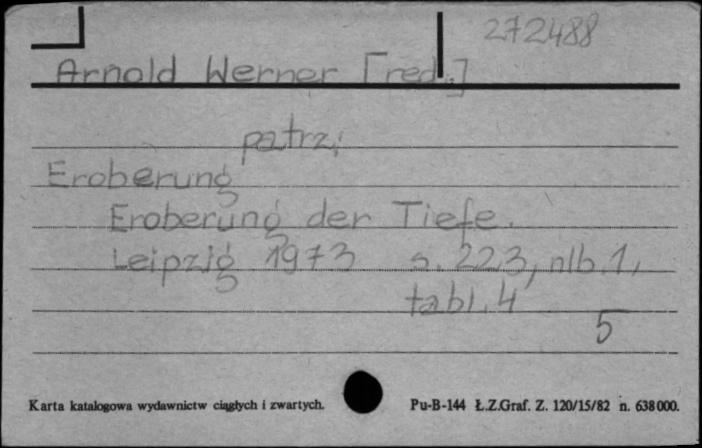 272488
Arnold Werner [red.]
patrz:
Eroberung
Eroberung der Tiefe.
Leipzig 1973 s. 223, nlb. 1,
tabl. 4
5
Karta katalogowa wydawnictw ciągłych i zwartych.
Pu-B-144 Ł.Z.Graf. Z. 120/15/82 n. 638000.